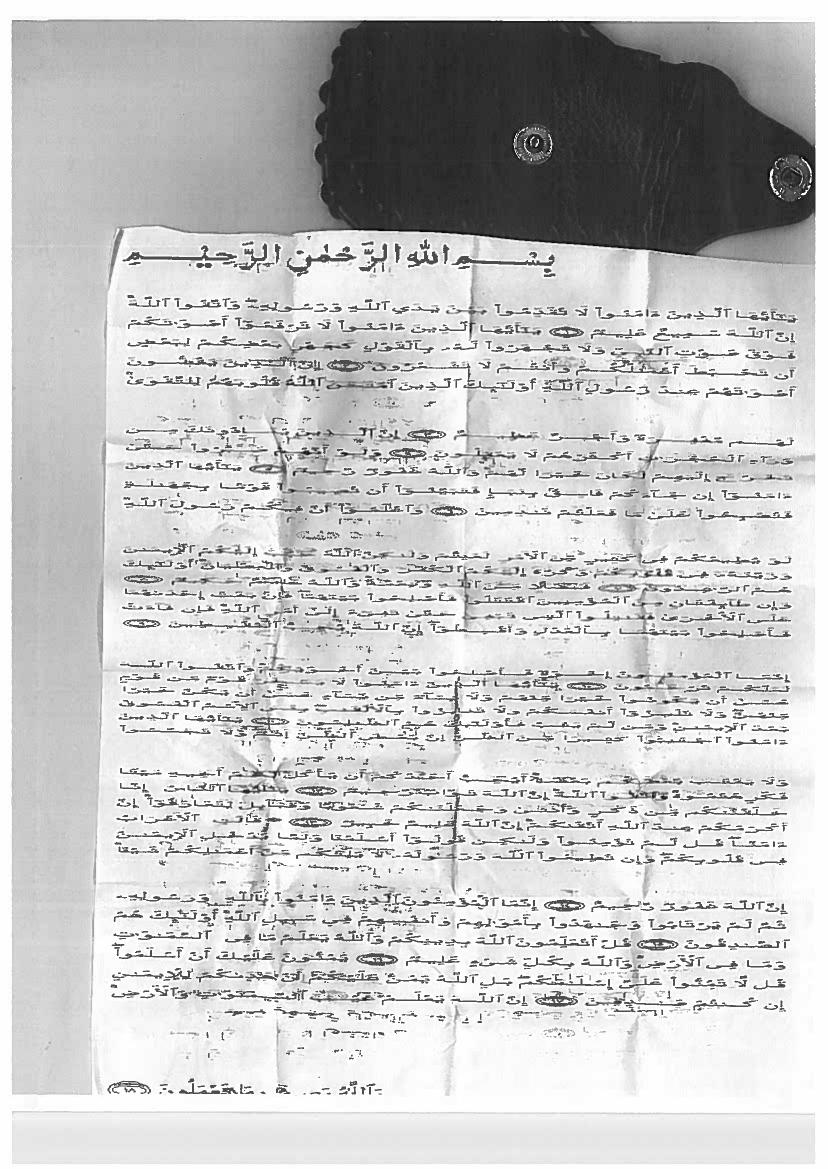 بِسْمِ اللهِ الرَّحْمٰنِ الرَّحِيْمِ
يَـٰٓأَيُّهَا ٱلَّذِينَ ءَامَنُوا۟ لَا تُقَدِّمُوا۟ بَيْنَ يَدَىِ ٱللَّهِ وَرَسُولِهِۦ وَٱتَّقُوا۟ ٱللَّهَ
إِنَّ ٱللَّهَ سَمِيعٌ عَلِيمٌ ١ يَـٰٓأَيُّهَا ٱلَّذِينَ ءَامَنُوا۟ لَا تَرْفَعُوٓا۟ أَصْوَٰتَكُمْ
فَوْقَ صَوْتِ ٱلنَّبِىِّ وَلَا تَجْهَرُوا۟ لَهُۥ بِٱلْقَوْلِ كَجَهْرِ بَعْضِكُمْ لِبَعْضٍ
أَن تَحْبَطَ أَعْمَـٰلُكُمْ وَأَنتُمْ لَا تَشْعُرُونَ ٢ إِنَّ ٱلَّذِينَ يَغُضُّونَ
أَصْوَٰتَهُمْ عِندَ رَسُولِ ٱللَّهِ أُو۟لَـٰٓئِكَ ٱلَّذِينَ ٱمْتَحَنَ ٱللَّهُ قُلُوبَهُمْ لِلتَّقْوَىٰ
لَهُم مَّغْفِرَةٌ وَأَجْرٌ عَظِيمٌ ٣ إِنَّ ٱلَّذِينَ يُنَادُونَكَ مِن
وَرَآءِ ٱلْحُجُرَٰتِ أَكْثَرُهُمْ لَا يَعْقِلُونَ ٤ وَلَوْ أَنَّهُمْ صَبَرُوا۟ حَتَّىٰ
تَخْرُجَ إِلَيْهِمْ لَكَانَ خَيْرًا لَّهُمْ وَٱللَّهُ غَفُورٌ رَّحِيمٌ ٥ يَـٰٓأَيُّهَا ٱلَّذِينَ
ءَامَنُوٓا۟ إِن جَآءَكُمْ فَاسِقٌۢ بِنَبَإٍ فَتَبَيَّنُوٓا۟ أَن تُصِيبُوا۟ قَوْمًۢا بِجَهَـٰلَةٍ
فَتُصْبِحُوا۟ عَلَىٰ مَا فَعَلْتُمْ نَـٰدِمِينَ ٦ وَٱعْلَمُوٓا۟ أَنَّ فِيكُمْ رَسُولَ ٱللَّهِ
لَوْ يُطِيعُكُمْ فِى كَثِيرٍ مِّنَ ٱلْأَمْرِ لَعَنِتُّمْ وَلَـٰكِنَّ ٱللَّهَ حَبَّبَ إِلَيْكُمُ ٱلْإِيمَـٰنَ
وَزَيَّنَهُۥ فِى قُلُوبِكُمْ وَكَرَّهَ إِلَيْكُمُ ٱلْكُفْرَ وَٱلْفُسُوقَ وَٱلْعِصْيَانَ أُو۟لَـٰٓئِكَ
هُمُ ٱلرَّٰشِدُونَ ٧ فَضْلًا مِّنَ ٱللَّهِ وَنِعْمَةً وَٱللَّهُ عَلِيمٌ حَكِيمٌ ٨
وَإِن طَآئِفَتَانِ مِنَ ٱلْمُؤْمِنِينَ ٱقْتَتَلُوا۟ فَأَصْلِحُوا۟ بَيْنَهُمَا فَإِنۢ بَغَتْ إِحْدَىٰهُمَا
عَلَى ٱلْأُخْرَىٰ فَقَـٰتِلُوا۟ ٱلَّتِى تَبْغِى حَتَّىٰ تَفِىٓءَ إِلَىٰٓ أَمْرِ ٱللَّهِ فَإِن فَآءَتْ
فَأَصْلِحُوا۟ بَيْنَهُمَا بِٱلْعَدْلِ وَأَقْسِطُوٓا۟ إِنَّ ٱللَّهَ يُحِبُّ ٱلْمُقْسِطِينَ ٩
إِنَّمَا ٱلْمُؤْمِنُونَ إِخْوَةٌ فَأَصْلِحُوا۟ بَيْنَ أَخَوَيْكُمْ وَٱتَّقُوا۟ ٱللَّهَ
لَعَلَّكُمْ تُرْحَمُونَ ١٠ يَـٰٓأَيُّهَا ٱلَّذِينَ ءَامَنُوا۟ لَا يَسْخَرْ قَوْمٌ مِّن قَوْمٍ
عَسَىٰٓ أَن يَكُونُوا۟ خَيْرًا مِّنْهُمْ وَلَا نِسَآءٌ مِّن نِّسَآءٍ عَسَىٰٓ أَن يَكُنَّ خَيْرًا
مِّنْهُنَّ وَلَا تَلْمِزُوٓا۟ أَنفُسَكُمْ وَلَا تَنَابَزُوا۟ بِٱلْأَلْقَـٰبِ بِئْسَ ٱلِٱسْمُ ٱلْفُسُوقُ
بَعْدَ ٱلْإِيمَـٰنِ وَمَن لَّمْ يَتُبْ فَأُو۟لَـٰٓئِكَ هُمُ ٱلظَّـٰلِمُونَ ١١ يَـٰٓأَيُّهَا ٱلَّذِينَ
ءَامَنُوا۟ ٱجْتَنِبُوا۟ كَثِيرًا مِّنَ ٱلظَّنِّ إِنَّ بَعْضَ ٱلظَّنِّ إِثْمٌ وَلَا تَجَسَّسُوا۟
وَلَا يَغْتَب بَّعْضُكُم بَعْضًا أَيُحِبُّ أَحَدُكُمْ أَن يَأْكُلَ لَحْمَ أَخِيهِ مَيْتًا
فَكَرِهْتُمُوهُ وَٱتَّقُوا۟ ٱللَّهَ إِنَّ ٱللَّهَ تَوَّابٌ رَّحِيمٌ ١٢ يَـٰٓأَيُّهَا ٱلنَّاسُ إِنَّا
خَلَقْنَـٰكُم مِّن ذَكَرٍ وَأُنثَىٰ وَجَعَلْنَـٰكُمْ شُعُوبًا وَقَبَآئِلَ لِتَعَارَفُوٓا۟ إِنَّ
أَكْرَمَكُمْ عِندَ ٱللَّهِ أَتْقَىٰكُمْ إِنَّ ٱللَّهَ عَلِيمٌ خَبِيرٌ ١٣ قَالَتِ ٱلْأَعْرَابُ
ءَامَنَّا قُل لَّمْ تُؤْمِنُوا۟ وَلَـٰكِن قُولُوٓا۟ أَسْلَمْنَا وَلَمَّا يَدْخُلِ ٱلْإِيمَـٰنُ
فِى قُلُوبِكُمْ وَإِن تُطِيعُوا۟ ٱللَّهَ وَرَسُولَهُۥ لَا يَلِتْكُم مِّنْ أَعْمَـٰلِكُمْ شَيْـًٔا
إِنَّ ٱللَّهَ غَفُورٌ رَّحِيمٌ ١٤ إِنَّمَا ٱلْمُؤْمِنُونَ ٱلَّذِينَ ءَامَنُوا۟ بِٱللَّهِ وَرَسُولِهِۦ
ثُمَّ لَمْ يَرْتَابُوا۟ وَجَـٰهَدُوا۟ بِأَمْوَٰلِهِمْ وَأَنفُسِهِمْ فِى سَبِيلِ ٱللَّهِ أُو۟لَـٰٓئِكَ هُمُ
ٱلصَّـٰدِقُونَ ١٥ قُلْ أَتُعَلِّمُونَ ٱللَّهَ بِدِينِكُمْ وَٱللَّهُ يَعْلَمُ مَا فِى ٱلسَّمَـٰوَٰتِ
وَمَا فِى ٱلْأَرْضِ وَٱللَّهُ بِكُلِّ شَىْءٍ عَلِيمٌ ١٦ يَمُنُّونَ عَلَيْكَ أَنْ أَسْلَمُوا۟
قُل لَّا تَمُنُّوا۟ عَلَىَّ إِسْلَـٰمَكُم بَلِ ٱللَّهُ يَمُنُّ عَلَيْكُمْ أَنْ هَدَىٰكُمْ لِلْإِيمَـٰنِ
إِن كُنتُمْ صَـٰدِقِينَ ١٧ إِنَّ ٱللَّهَ يَعْلَمُ غَيْبَ ٱلسَّمَـٰوَٰتِ وَٱلْأَرْضِ
وَٱللَّهُ بَصِيرٌۢ بِمَا تَعْمَلُونَ ١٨